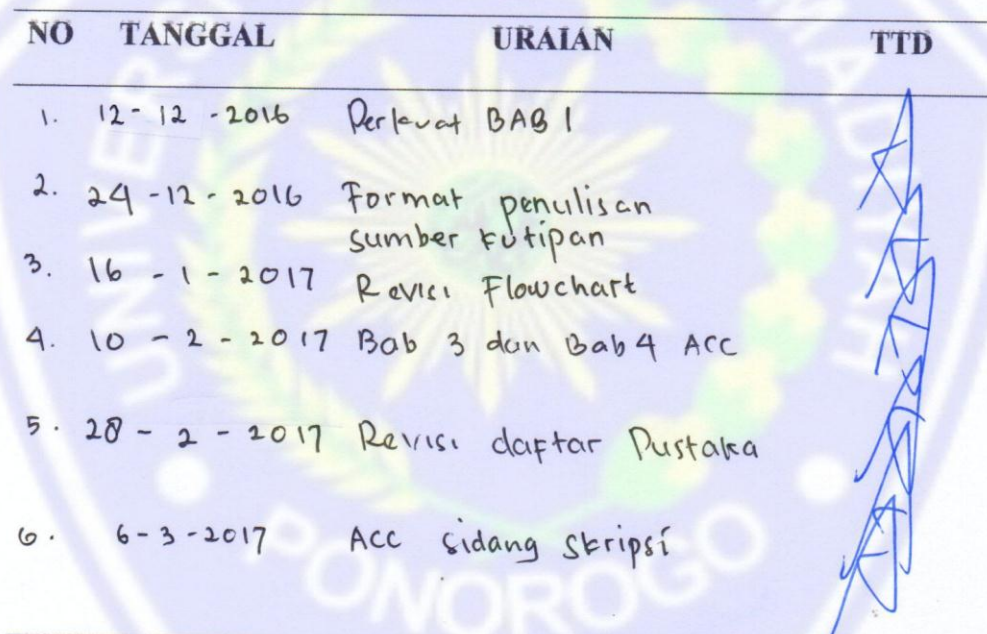 NO TANGGAL URAIAN TTD
1. 12-12-2016 Perkuat BAB 1
2. 24-12-2016 Format penulisan
sumber kutipan
3. 16-1-2017 Revisi Flowchart
4. 10-2-2017 Bab 3 dan Bab 4 ACC
5. 28-2-2017 Revisi daftar Pustaka
6. 6-3-2017 ACC sidang skripsi
PONOROGO